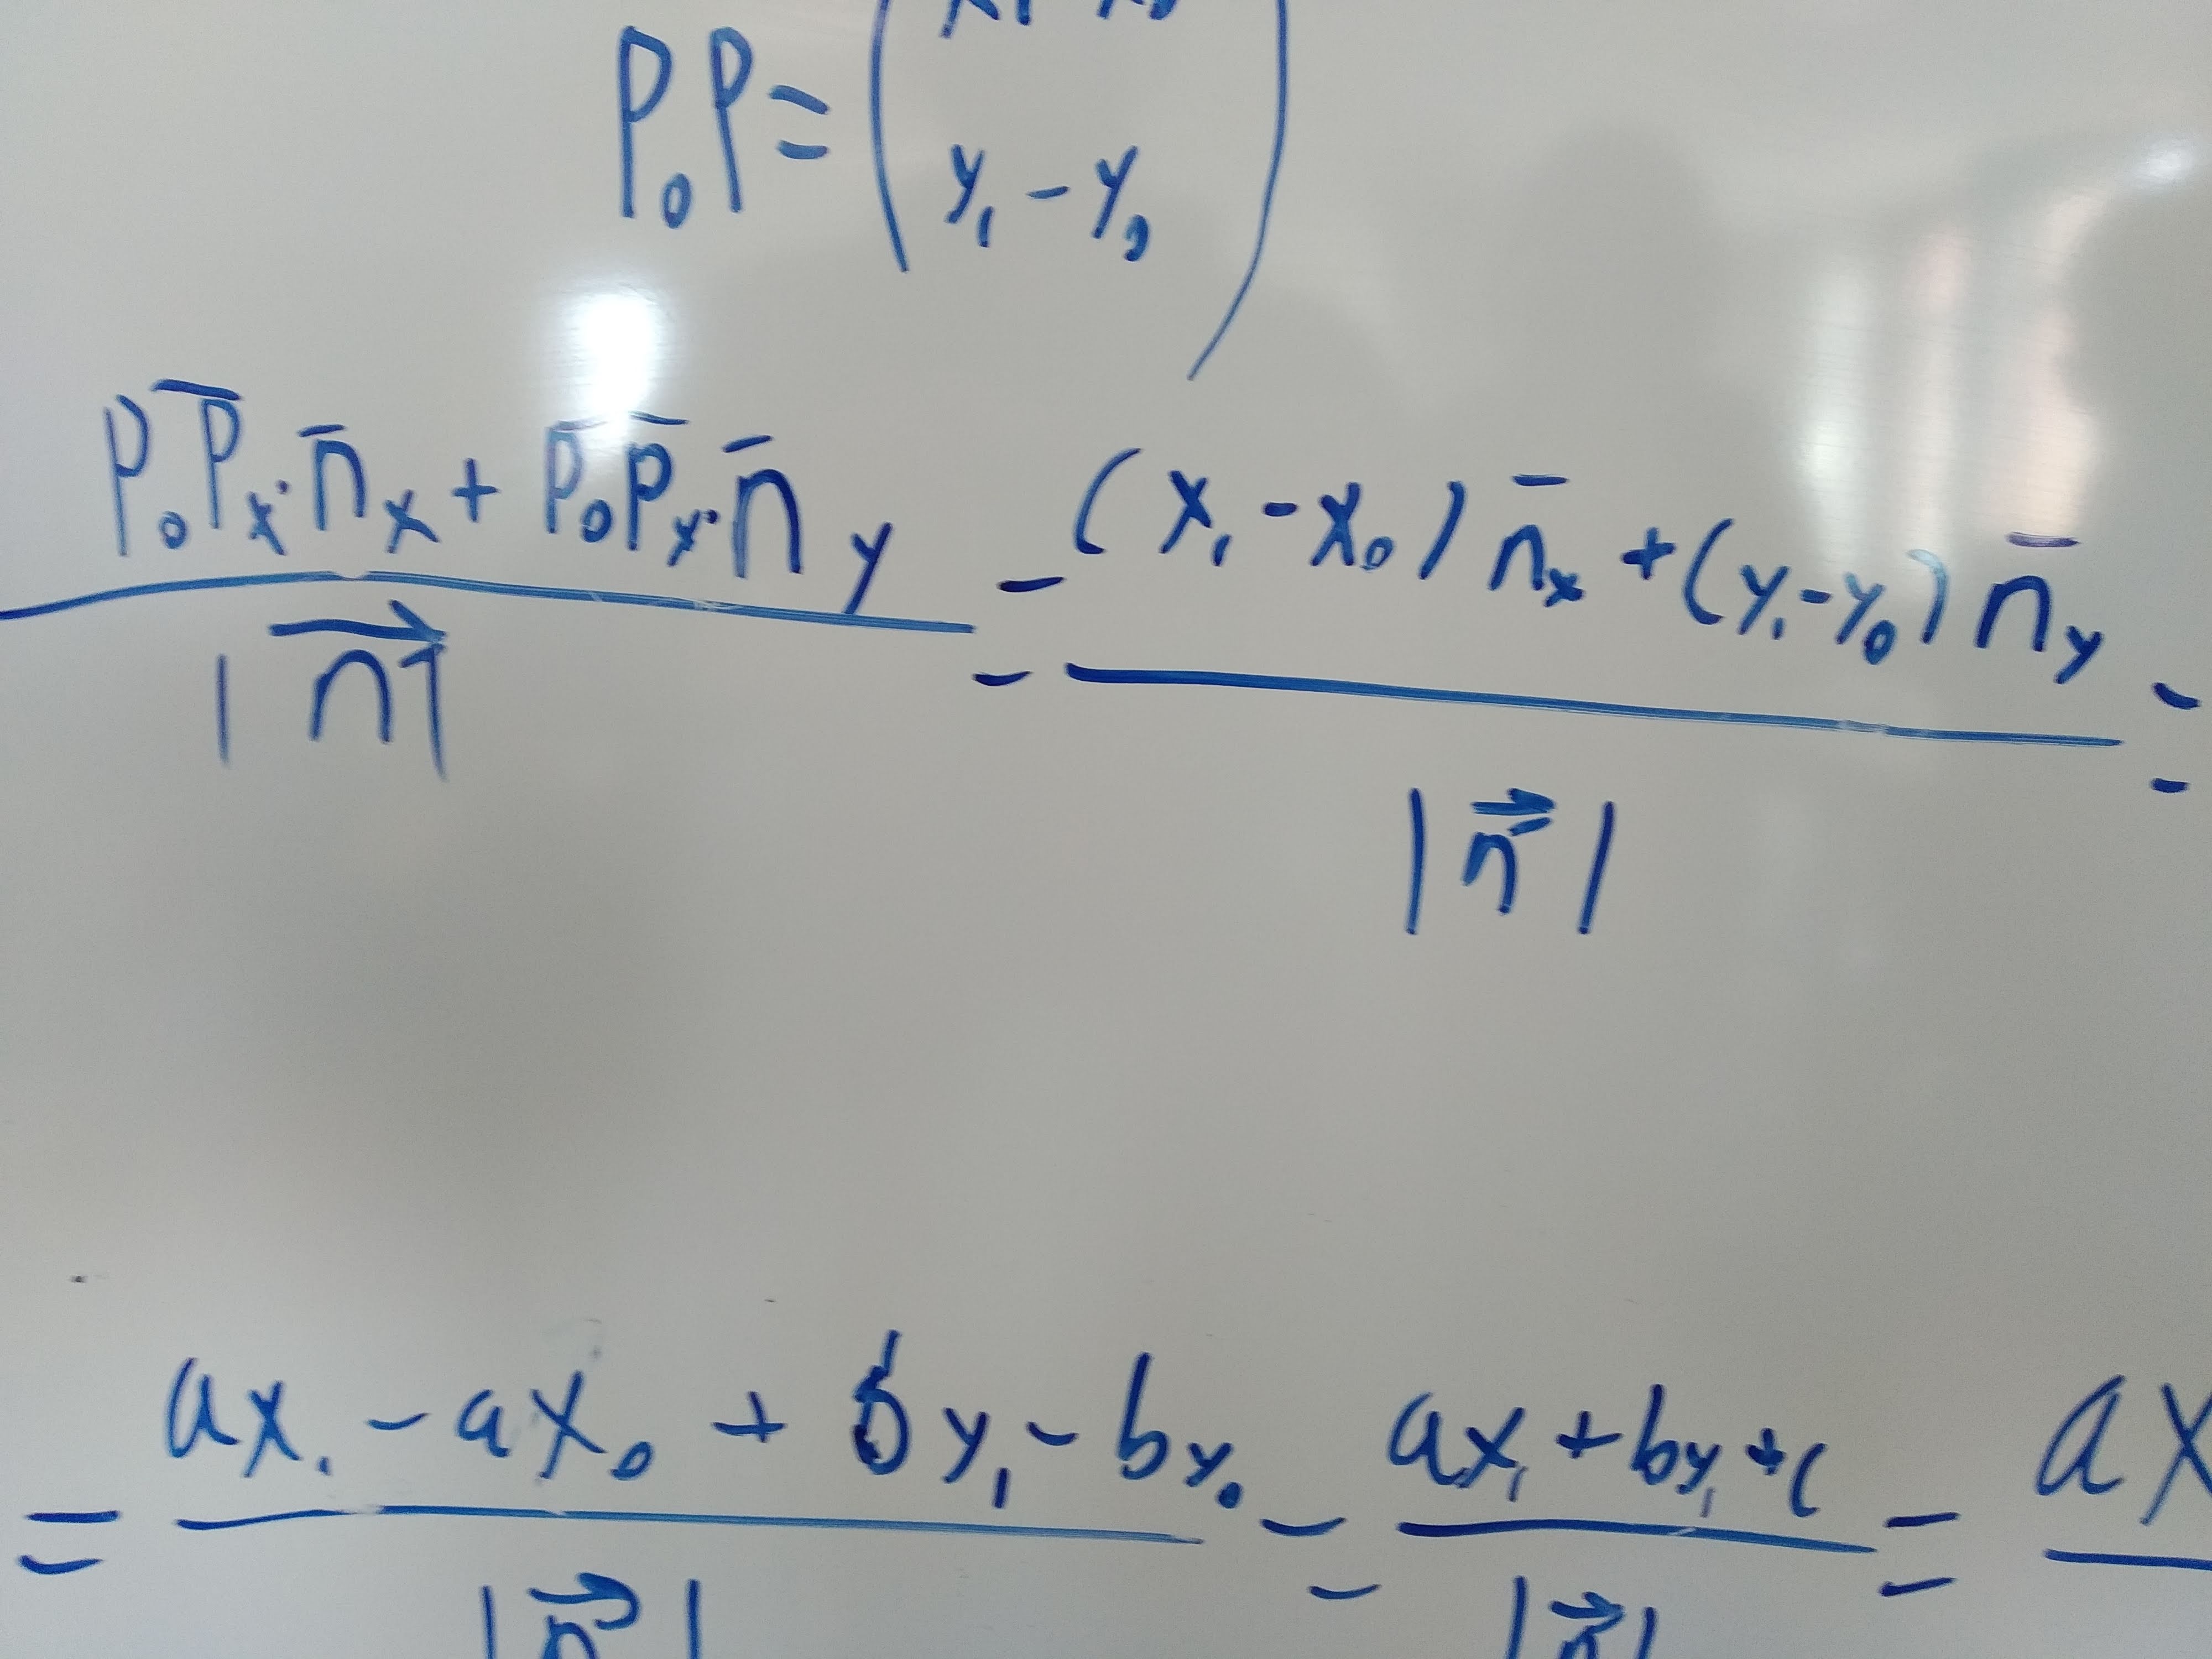 P₀P = (
y₁ - y₀ )
P₀P̅ₓ · n̅ₓ + P̅₀P̅ᵧ · n̅ᵧ / |n⃗| = (x₁ - x₀) n̅ₓ + (y₁ - y₀) n̅ᵧ / |n⃗| =
= ax₁ - ax₀ + by₁ - by₀ / |n⃗| = ax₁ + by₁ + c / |n⃗| = ax